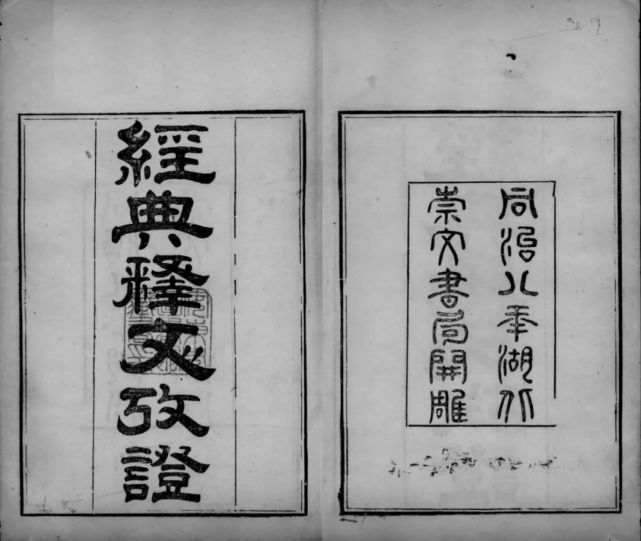 同治八年湖北
崇文書局開雕
經典釋文攷證